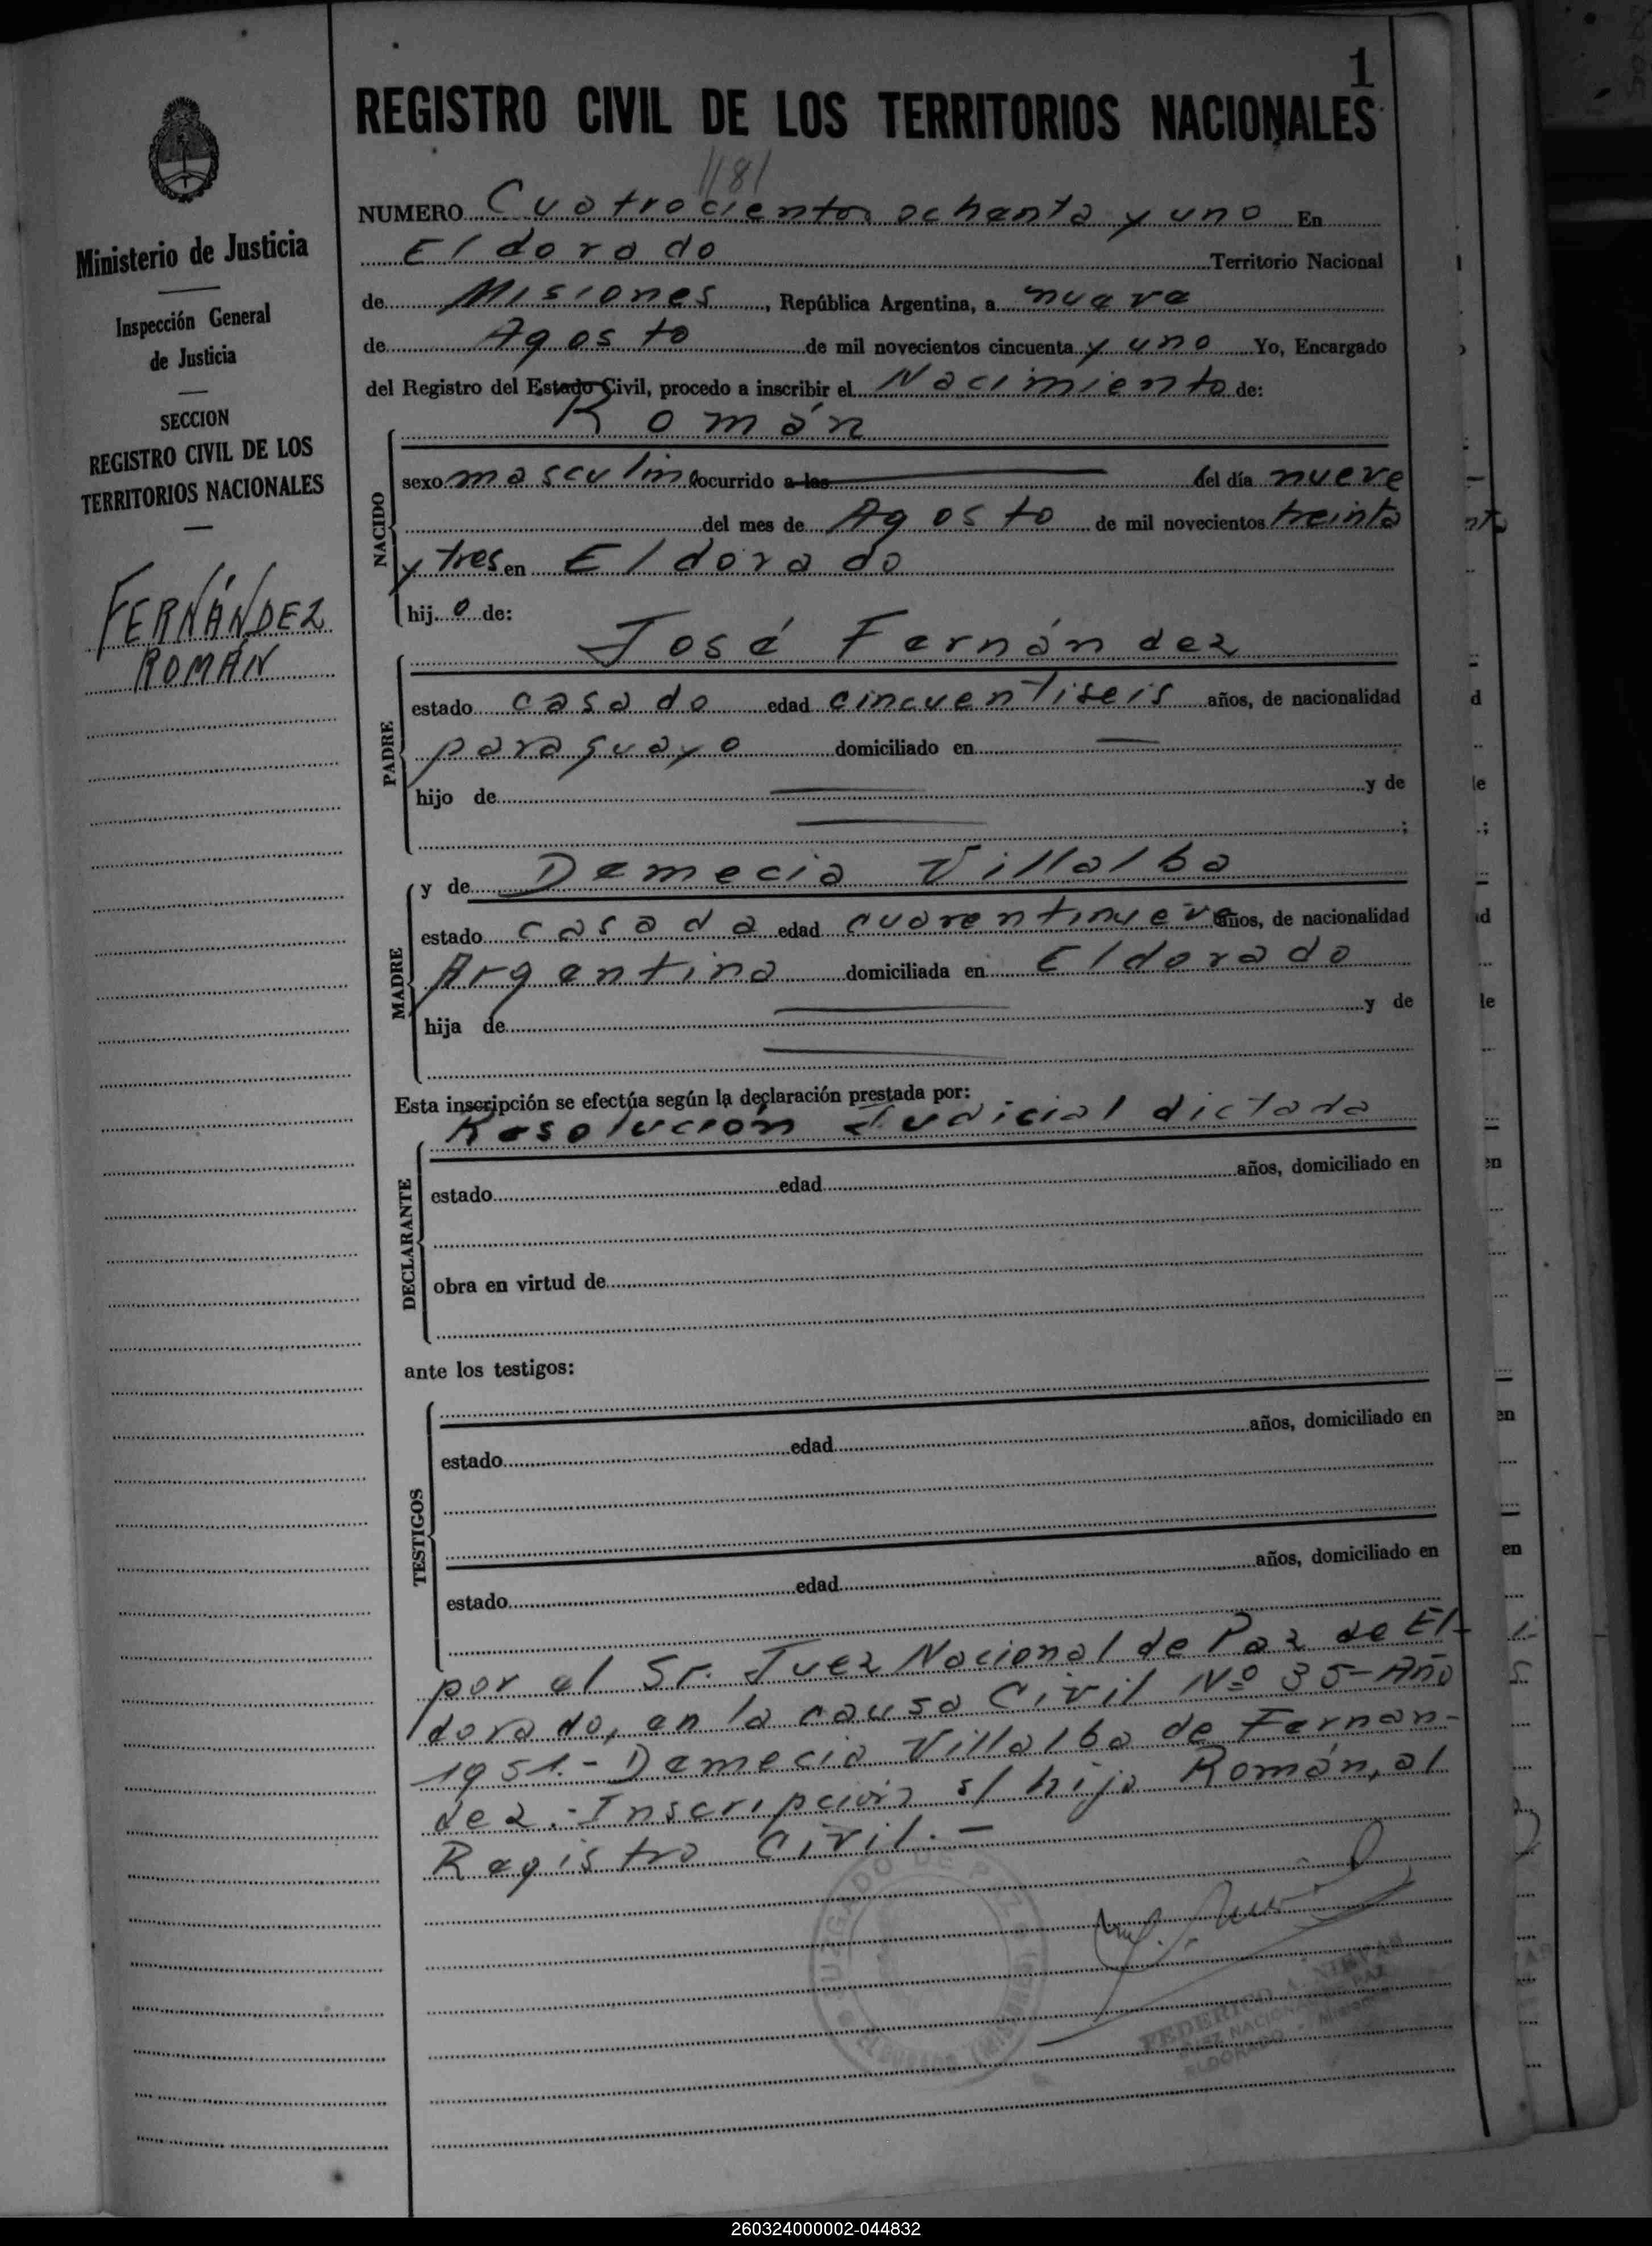 1
REGISTRO CIVIL DE LOS TERRITORIOS NACIONALES
Ministerio de Justicia
Inspección General
de Justicia
SECCION
REGISTRO CIVIL DE LOS
TERRITORIOS NACIONALES
FERNÁNDEZ
ROMÁN
NUMERO Cuatrocientos ochenta y uno En
Eldorado Territorio Nacional
de Misiones, República Argentina, a nueve
de Agosto de mil novecientos cincuenta y uno Yo, Encargado
del Registro del Estado Civil, procedo a inscribir el Nacimiento de:
NACIDO
Román
sexo masculino ocurrido a las del día nueve
del mes de Agosto de mil novecientos treinta
y tres en Eldorado
hijo de:
PADRE
José Fernández
estado casado edad cincuentiseis años, de nacionalidad
paraguayo domiciliado en
hijo de y de
;
MADRE
y de Demecia Villalba
estado casada edad cuarentinueve años, de nacionalidad
Argentina domiciliada en Eldorado
hija de y de
Esta inscripción se efectúa según la declaración prestada por:
DECLARANTE
Resolución Judicial dictada
estado edad años, domiciliado en
obra en virtud de
ante los testigos:
TESTIGOS
estado edad años, domiciliado en
estado edad años, domiciliado en
por el Sr. Juez Nacional de Paz de El-
dorado, en la causa Civil Nº 35-Año
1951.- Demecia Villalba de Fernan-
dez.- Inscripción s/ hijo Román, al
Registro Civil.-
JUZGADO DE PAZ
(MISIONES)
FEDERICO A.
JUEZ NACIONAL DE PAZ
ELDORADO - Misiones
260324000002-044832